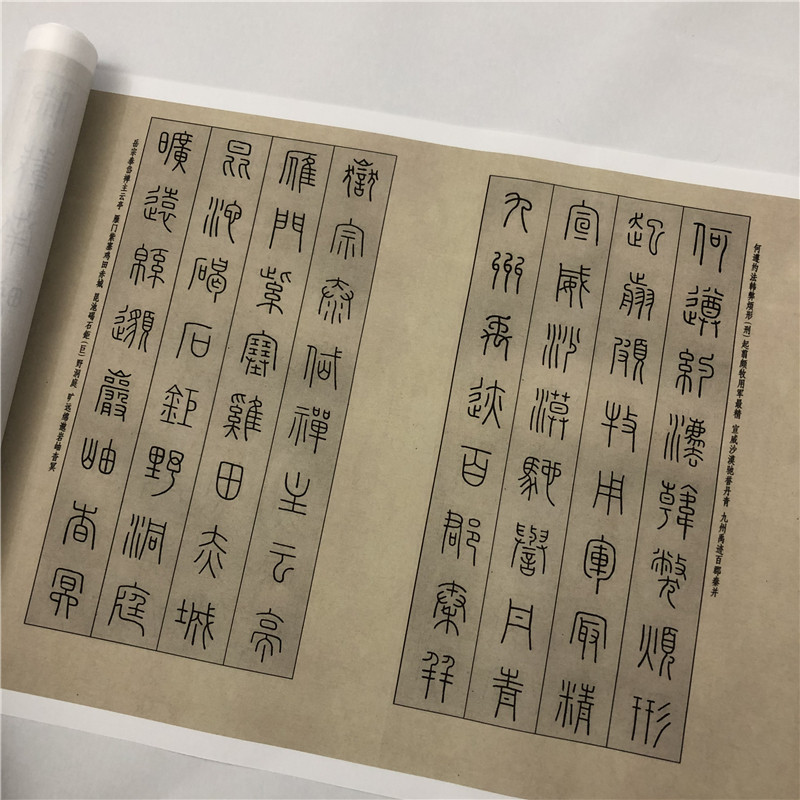 何遵约法韩弊烦形(刑) 起翦颇牧用军最精 宣威沙漠驰誉丹青 九州禹迹百郡秦并
何遵約灋韓弊煩形
起翦頗牧用軍最精
宣威沙漠馳譽丹青
九州禹迹百郡秦并
嶽宗泰岱禪主云亭
雁門紫塞雞田赤城
昆池碣石鉅野洞庭
曠遠緜邈巖岫杳冥
岳宗泰岱禅主云亭 雁门紫塞鸡田赤城 昆池碣石鉅(巨)野洞庭 旷远绵邈岩岫杳冥